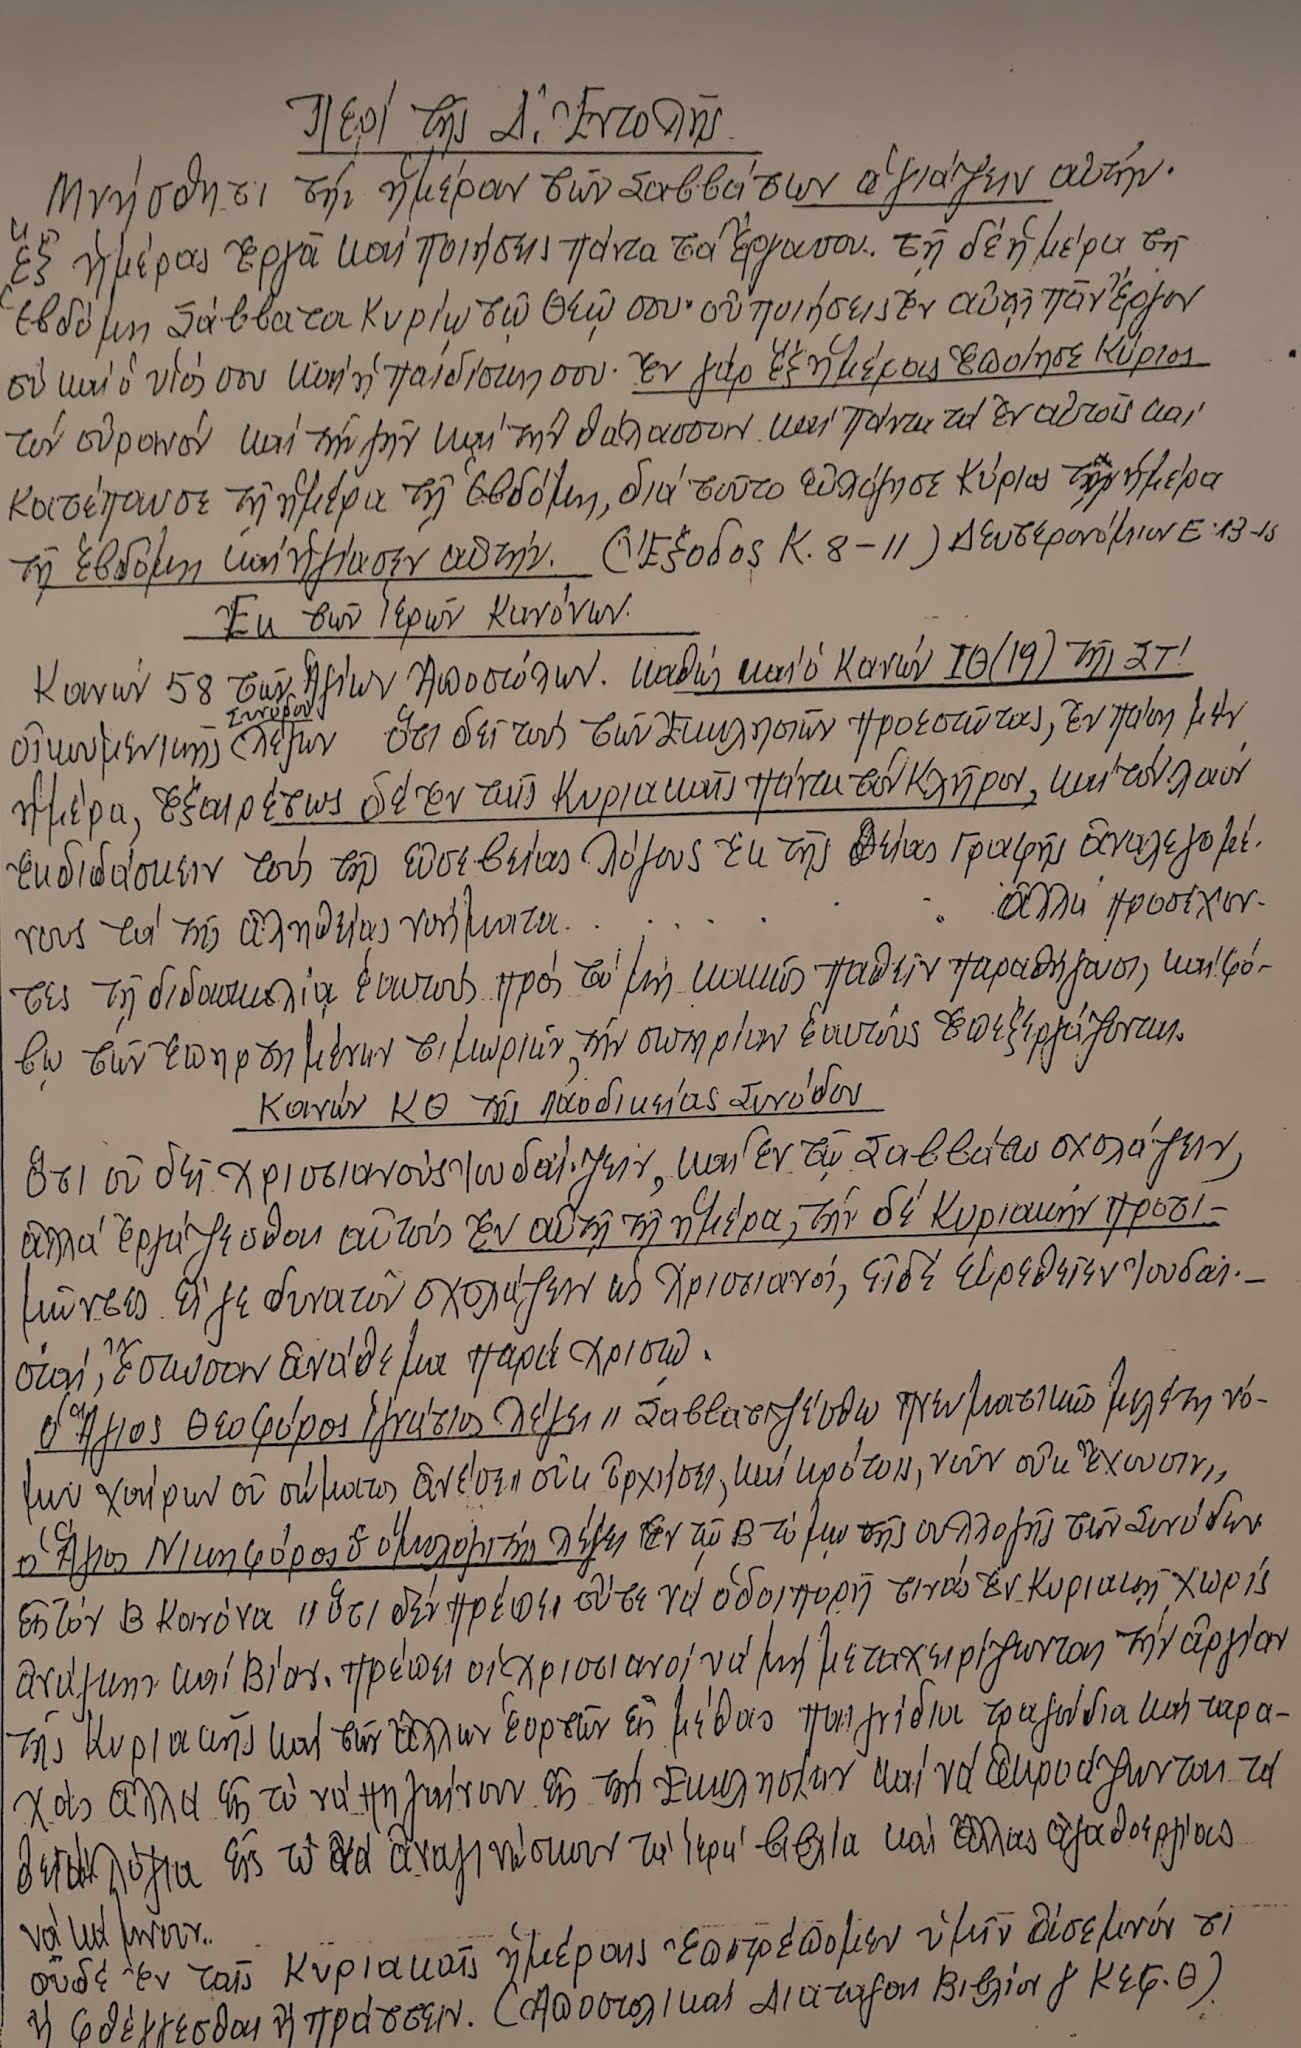 Περί τῆς Δ΄. Ἐντολῆς
Μνήσθητι τήν ἡμέραν τῶν Σαββάτων ἁγιάζειν αὐτήν.
ἕξ ἡμέρας ἐργᾶ καί ποιήσεις πάντα τά ἔργα σου. τῆ δέ ἡμέρα τῆ
ἑβδόμη Σάββατα Κυρίῳ τῷ Θεῷ σου· οὐ ποιήσεις ἐν αὐτῆ πᾶν ἔργον
σύ καί ὁ υἱός σου καί ἡ παιδίσκη σου. ἐν γάρ ἕξ ἡμέραις ἐποίησε Κύριος
τόν οὐρανόν καί τήν γῆν καί τήν θάλασσαν καί πάντα τά ἐν αὐτοῖς καί
κατέπαυσε τῆ ἡμέρα τῆ ἑβδόμη, διά τοῦτο εὐλόγησε Κύριος τήν ἡμέρα
τῆ ἑβδόμη καί ἡγίασεν αὐτήν. (Ἔξοδος Κ. 8-11) Δευτερονόμιον Ε. 13-15
Ἐκ τῶν Ἱερῶν Κανόνων.
Κανών 58 τῶν Ἁγίων Ἀποστόλων. καθώς καί ὁ Κανών ΙΘ (19) τῆς ΣΤ΄
Συνόδου
οἰκουμενικῆς λέγων ὅτι δεῖ τούς τῶν Ἐκκλησιῶν προεστῶτας, ἐν πάση μέν
ἡμέρα, ἐξαιρέτως δέ ἐν ταῖς Κυριακαῖς πάντα τόν Κλῆρον, καί τόν λαόν
ἐκδιδάσκειν τούς τῆς εὐσεβείας λόγους ἐκ τῆς θείας Γραφῆς ἀναλεγομέ-
νους τά τῆς ἀληθείας νοήματα. . . . . . . ἀλλά προσέχον-
τες τῆ διδασκαλία ἑαυτούς πρός τό μή κακῶς παθεῖν παραθήγουσι, καί φό-
βῳ τῶν ἐπηρτημένων τιμωριῶν, τήν σωτηρίαν ἑαυτούς ἐπεξεργάζονται.
Κανών ΚΘ τῆς Λαοδικείας Συνόδου
Ὅτι οὐ δεῖ Χριστιανούς Ἰουδαΐζειν, καί ἐν τῷ Σαββάτω σχολάζειν,
ἀλλά ἐργάζεσθαι αὐτούς ἐν αὐτῆ τῆ ἡμέρα, τήν δέ Κυριακήν προτι-
μῶντες εἴγε δυνατόν σχολάζειν ὡς Χριστιανοί, εἰδέ εὑρεθεῖεν Ἰουδαϊ-
σταί, ἔστωσαν ἀνάθεμα παρά Χριστῷ.
Ὁ Ἅγιος Θεοφόρος Ἰγνάτιος λέγει "Σαββατιζέσθω πνευματικῶς μελέτη νό-
μου χαίρων οὐ σώματος ἀνέσει οὐκ ὀρχήσει, καί κρότοις, νοῦν οὐκ ἔχουσιν"
ὁ Ἅγιος Νικηφόρος ὁ ὁμολογητής λέγει ἐν τῷ Β τόμω τῆς συλλογῆς τῶν Συνόδων
εἰς τόν Β Κανόνα "ὅτι δέν πρέπει οὔτε νά ὁδοιπορῆ τινάς ἐν Κυριακῆ χωρίς
ἀνάγκην καί Βίαν. πρέπει οἱ Χριστιανοί νά μή μεταχειρίζωνται τήν ἀργίαν
τῆς Κυριακῆς καί τῶν ἄλλων ἑορτῶν εἰς μέθας παιγνίδια τραγούδια καί ταρα-
χάς ἀλλά εἰς τό νά πηγαίνουν εἰς τήν Ἐκκλησίαν καί νά ἀκροάζωνται τά
θεῖα λόγια εἰς τό νά ἀναγινώσκουν τά ἱερά βιβλία καί ἄλλας ἀγαθοεργίας
νά κάμνουν.
οὐδέ ἐν ταῖς Κυριακαῖς ἡμέραις ἐπιτρέπομεν ὑμῖν τι
ἤ φθέγγεσθαι ἤ πράττειν. (Ἀποστολικαί Διαταγαί Βιβλίον γ ΚΕΦ. Θ)